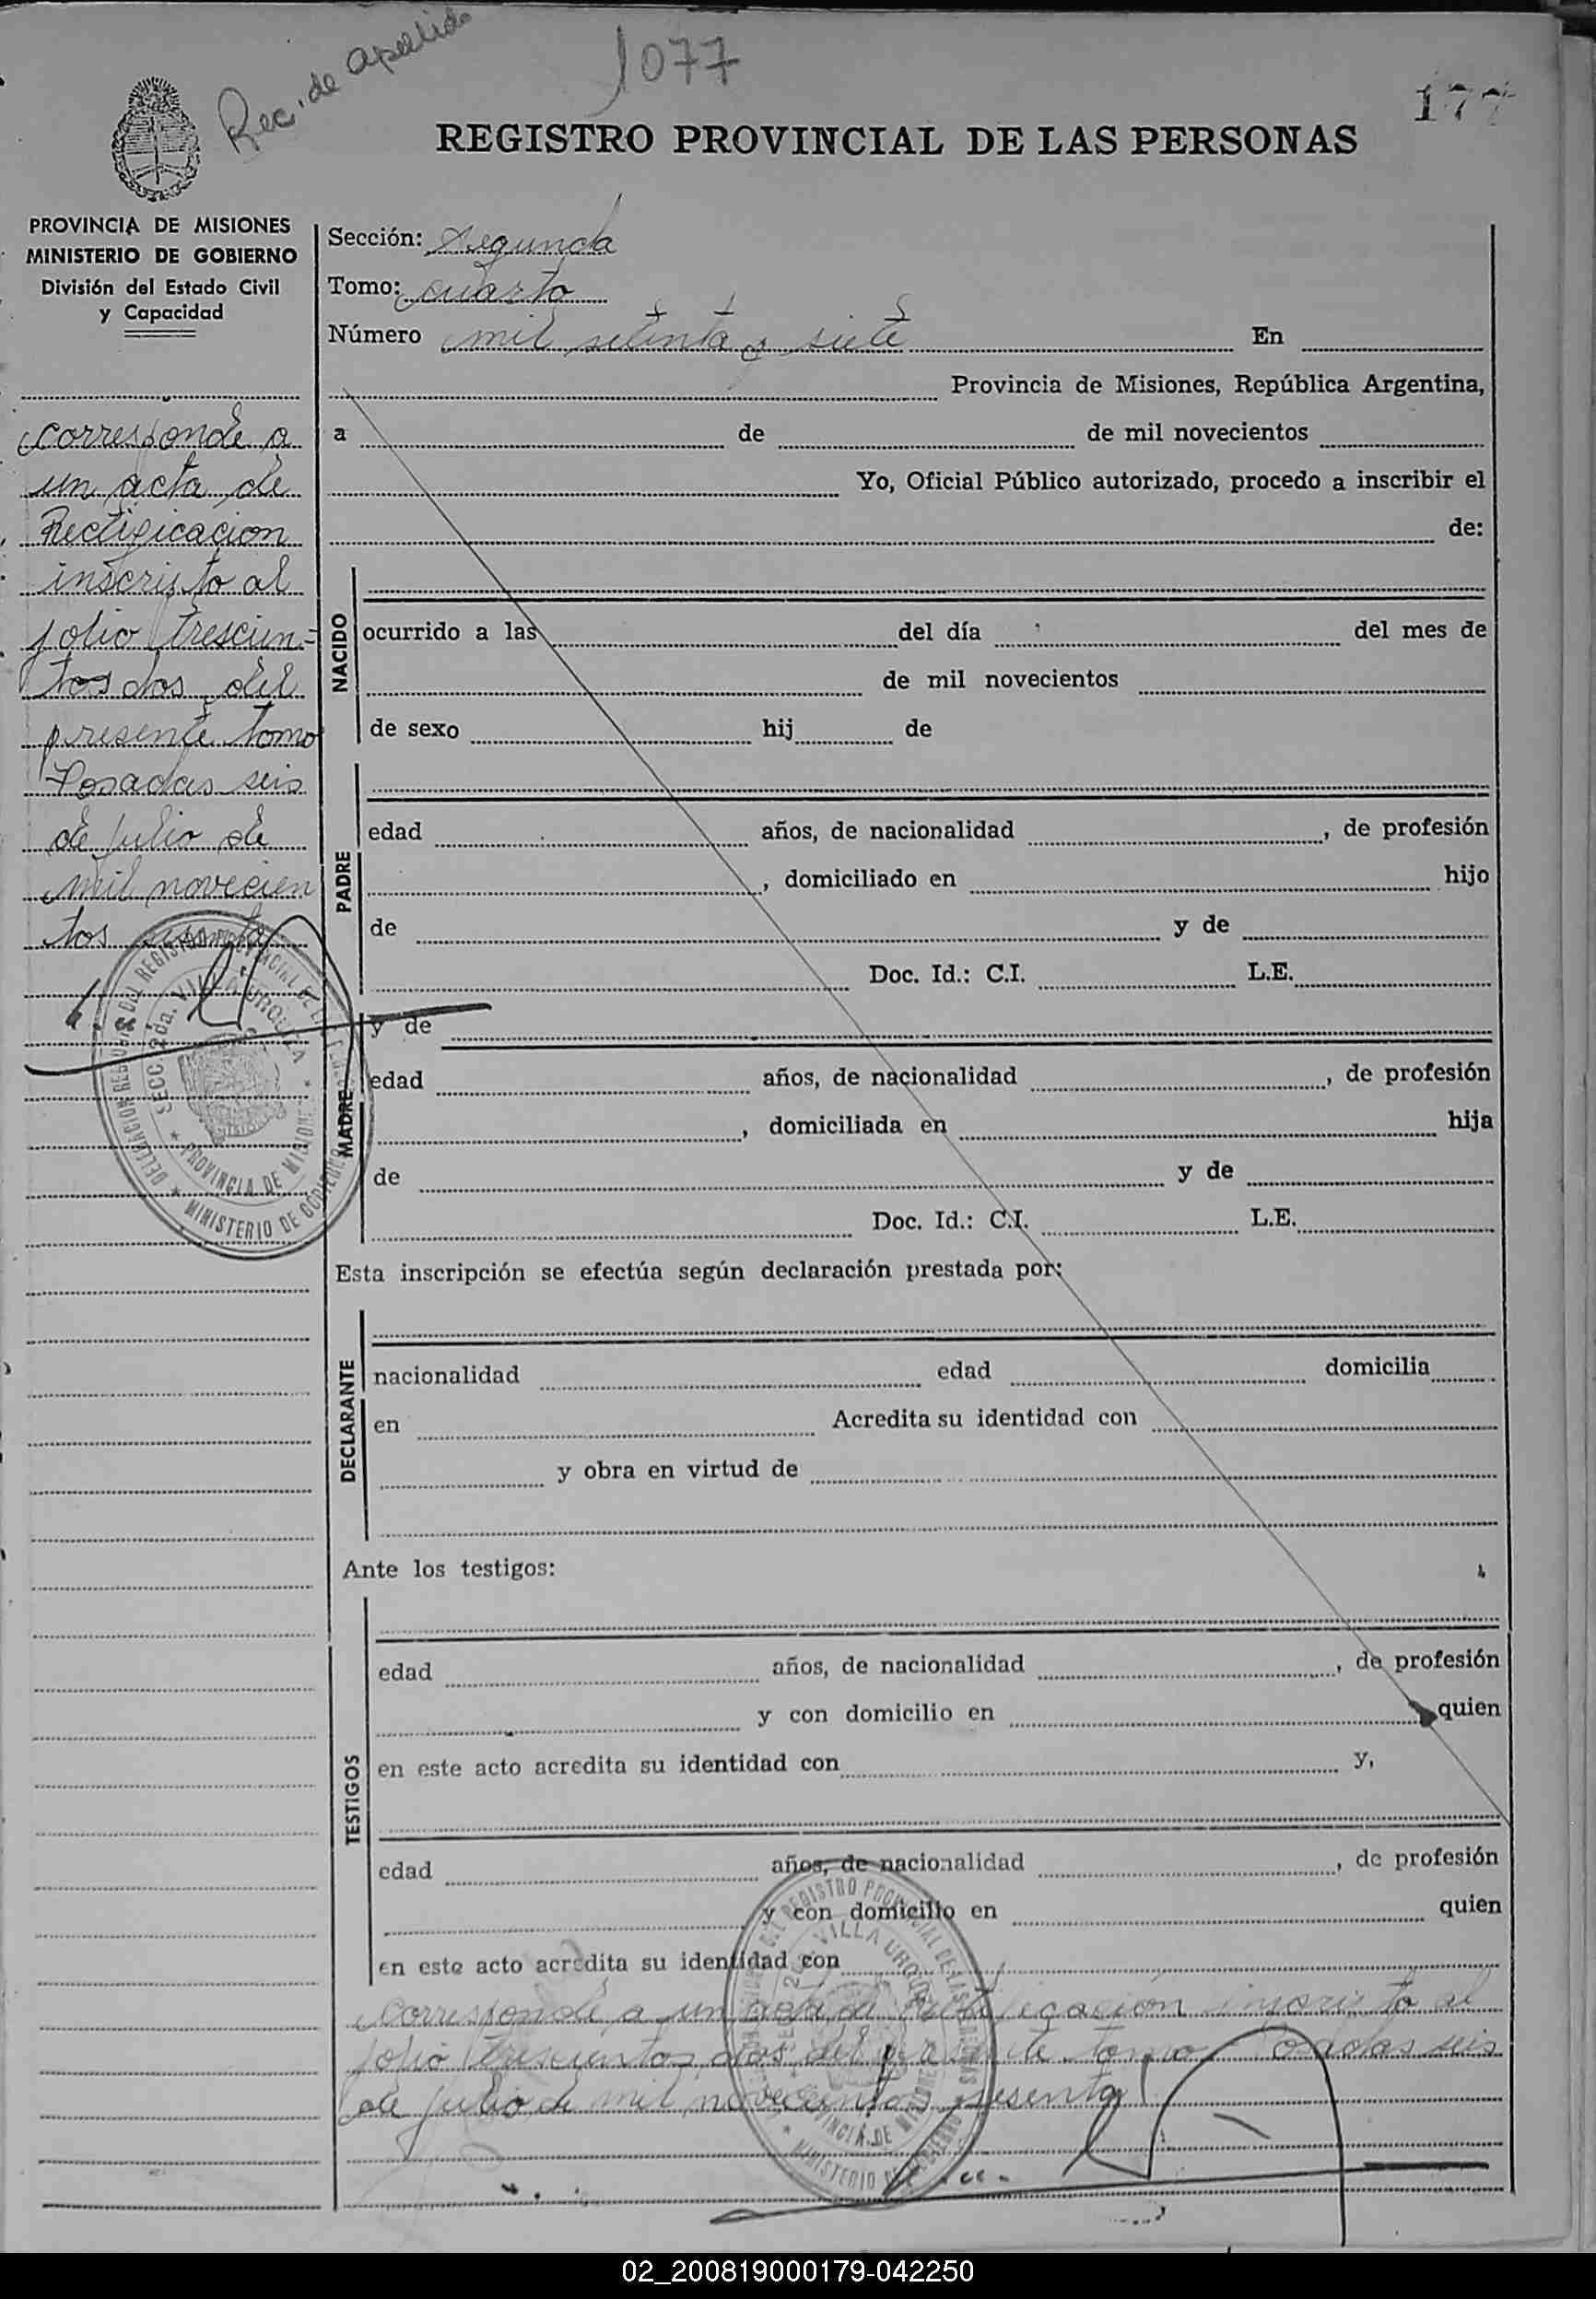 Rec. de apellido
1077
177
REGISTRO PROVINCIAL DE LAS PERSONAS
PROVINCIA DE MISIONES
MINISTERIO DE GOBIERNO
División del Estado Civil
y Capacidad
Sección: Segunda
Tomo: cuarto
Número mil setenta y siete En
Provincia de Misiones, República Argentina,
a de de mil novecientos
Yo, Oficial Público autorizado, procedo a inscribir el
de:
corresponde a
un acta de
Rectificacion
inscripto al
folio trescien=
tos dos del
presente tomo
Posadas seis
de julio de
mil novecien
tos sesenta
NACIDO
ocurrido a las del día del mes de
de mil novecientos
de sexo hij de
PADRE
edad años, de nacionalidad , de profesión
, domiciliado en hijo
de y de
Doc. Id.: C.I. L.E.
MADRE
y de
edad años, de nacionalidad , de profesión
, domiciliada en hija
de y de
Doc. Id.: C.I. L.E.
SECC. 2da. VILLA URQUIZA
PROVINCIA DE MISIONES
MINISTERIO DE GOBIERNO
Esta inscripción se efectúa según declaración prestada por:
DECLARANTE
nacionalidad edad domicilia
en Acredita su identidad con
y obra en virtud de
Ante los testigos:
TESTIGOS
edad años, de nacionalidad , de profesión
y con domicilio en quien
en este acto acredita su identidad con y,
edad años, de nacionalidad , de profesión
y con domicilio en quien
en este acto acredita su identidad con
corresponde a un acta de Rectificación inscripto al
folio trescientos dos del presente tomo Posadas seis
de julio de mil novecientos sesenta
02_200819000179-042250